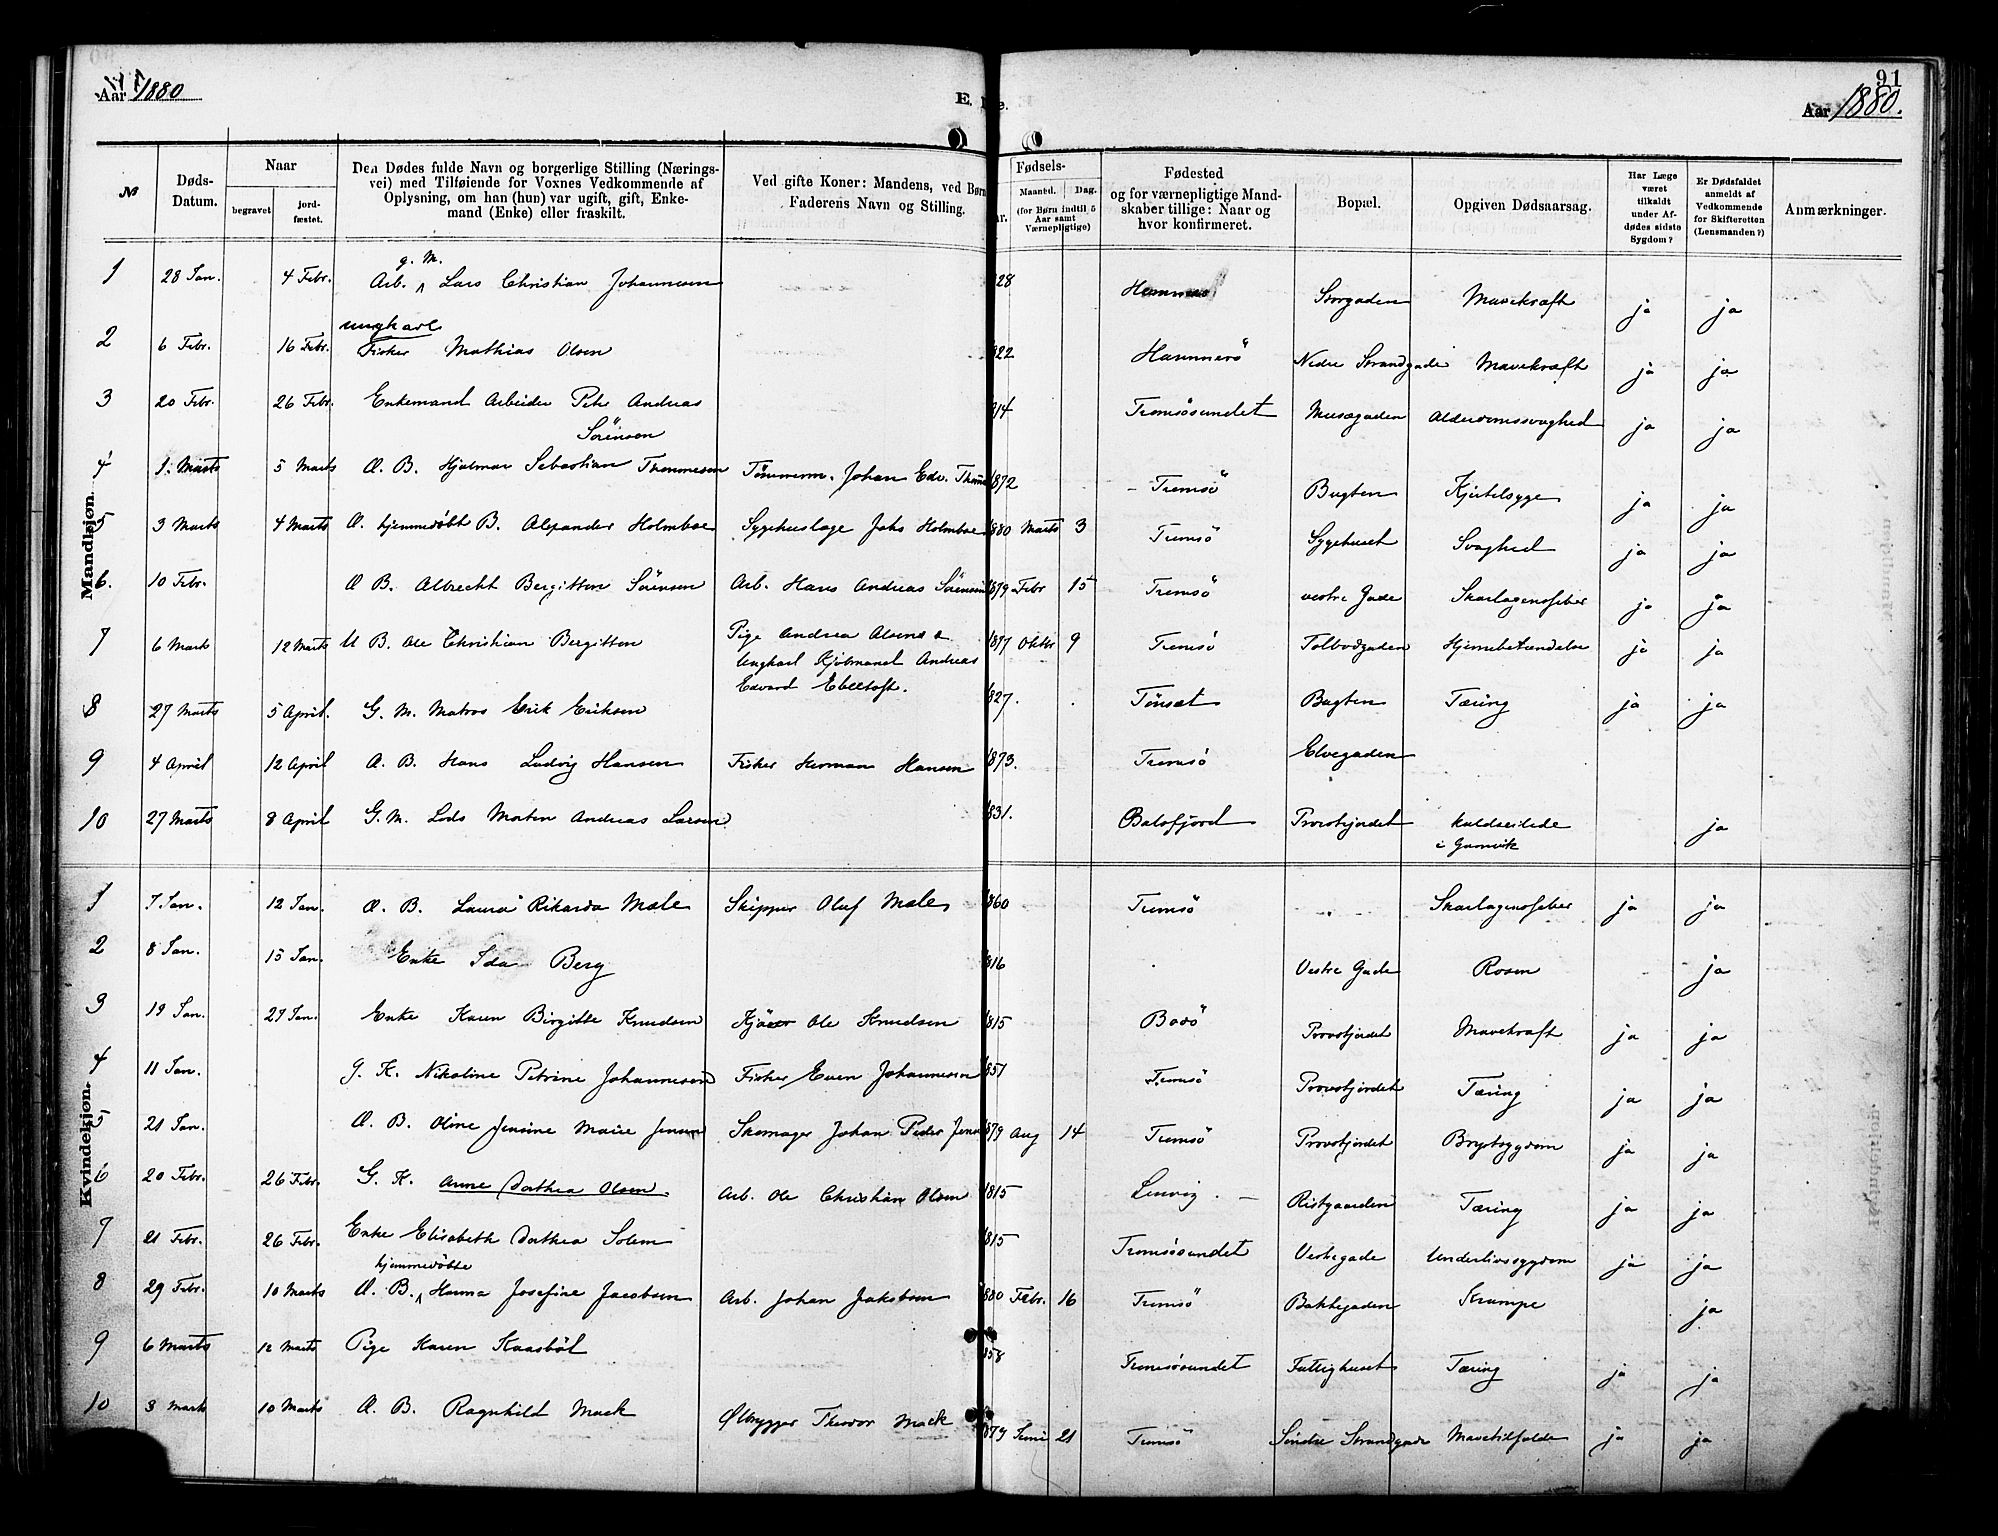 Aar 1880
E.
91
Aar 1880.
№
Døds-Datum.
Naar
begravet
jord-fæstet.
Den Dødes fulde Navn og borgerlige Stilling (Nærings-vei) med Tilføiende for Voxnes Vedkommende af Oplysning, om han (hun) var ugift, gift, Enke-mand (Enke) eller fraskilt.
Ved gifte Koner: Mandens, ved Børn Faderens Navn og Stilling.
Fødsels-
Maaned. Dag.
(for Børn indtil 5 Aar samt Værnepligtige)
Fødested og for værnepligtige Mand-skaber tillige: Naar og hvor konfirmeret.
Bopæl.
Opgiven Dødsaarsag.
Har Læge været tilkaldt under Af-dødes sidste Sygdom?
Er Dødsfaldet anmeldt af Vedkommende for Skifteretten (Lensmanden?)
Anmærkninger.
Mandkjøn.
1 28 Jan. 4 Febr. Arb. g. M. Lars Christian Johannesen 828 Hammerö Storgaden Mavekræft ja ja
2 6 Febr. 16 Febr. ungkarl Fisker Mathias Olsen 822 Hammerö Nedre Strandgade Mavekræft ja ja
3 20 Febr. 26 Febr. Enkemand Arbeider Peter Andreas Sörensen 814 Tromsösundet Musegaden Alderdomssvaghed ja ja
4 1. Marts 5 Marts Æ. B. Hjalmar Sebastian Thommesen Tömmerm. Johan Edv. Thom 1872 Tromsö Bugten Kjertelsyge ja ja
5 3 Marts 4 Marts Æ. hjemmedöbt B. Alexander Holmboe Sygehuslæge Johs Holmboe 880 Marts 3 Tromsö Sygehuset Svaghed ja ja
6. 10 Febr. Æ B. Albrecht Bergitton Sörensen Arb. Hans Andreas Sörensen 1879 Febr 15 Tromsö vestre Gade Skarlagensfeber ja ja
7 6 Marts 12 Marts U B. Ole Christian Bergitton Pige Andrea Olsen & Ungkarl Kjöbmand Andreas Edvard Ebeltoft. 1877 Oktbr 9 Tromsö Tolbodgaden Hjernebetændelse ja ja
8 27 Marts 5 April. G. M. Matros Erik Eriksen 827. Tönset Bugten Tæring ja ja
9 4 April 12 April Æ. B. Hans Ludvig Hansen Fisker Herman Hansen 1873. Tromsö Elvegaden
10 27 Marts 8 April G. M. Lods Morten Andreas Larsen 831. Balsfjord Provstjordet kuldseilede i Gamvik ja
Kvindekjøn.
1 7 Jan. 12 Jan. Æ. B. Laura Rikarda Mæle Skipper Oluf Mæle 860 Tromsö Skarlagensfeber ja ja
2 8 Jan. 15 Jan. Enke Ida Berg 816 Vestre Gade Rosen ja
3 19 Jan. 29 Jan. Enke Karen Birgitte Knudsen Ole Knudsen 1815 Bodö Provstjordet Mavekræft ja ja
4 11 Jan. G. K. Nikoline Petrine Johannesen Fisker Even Johannesen 851 Tromsö Provstjordet Tæring ja ja
5 21 Jan. Æ. B. Oline Jensine Marie Jensen Skomager Johan Peder Jens 879 Aug 14 Tromsö Provstjordet Brystsygdom ja ja
6 20 Febr. 26 Febr. G. K. Anne Dorthea Olsen. Arb. Ole Christian Olsen 1815 Lenvig. Ristgaarden Tæring ja ja
7 21 Febr. 26 Febr. Enke Elisabeth Dorthea Solem 815 Tromsösundet Vestregade Underlivssygdom ja ja
8 29 Febr. 10 Marts Æ. B. hjemmedöbte Hanna Josefine Jacobsen Arb. Johan Jakobsen 880 Febr. 16 Tromsö Bakkegaden Krampe ja
9 6 Marts 12 Marts Pige Karen Kaasböl 858 Tromsösundet Fattighuset Tæring ja ja
10 3 Marts 10 Marts Æ. B. Ragnhild Mack Ølbrygger Theodor Mack 879 Juni 21 Tromsö Söndre Strandgade Mavetilfælde ja ja